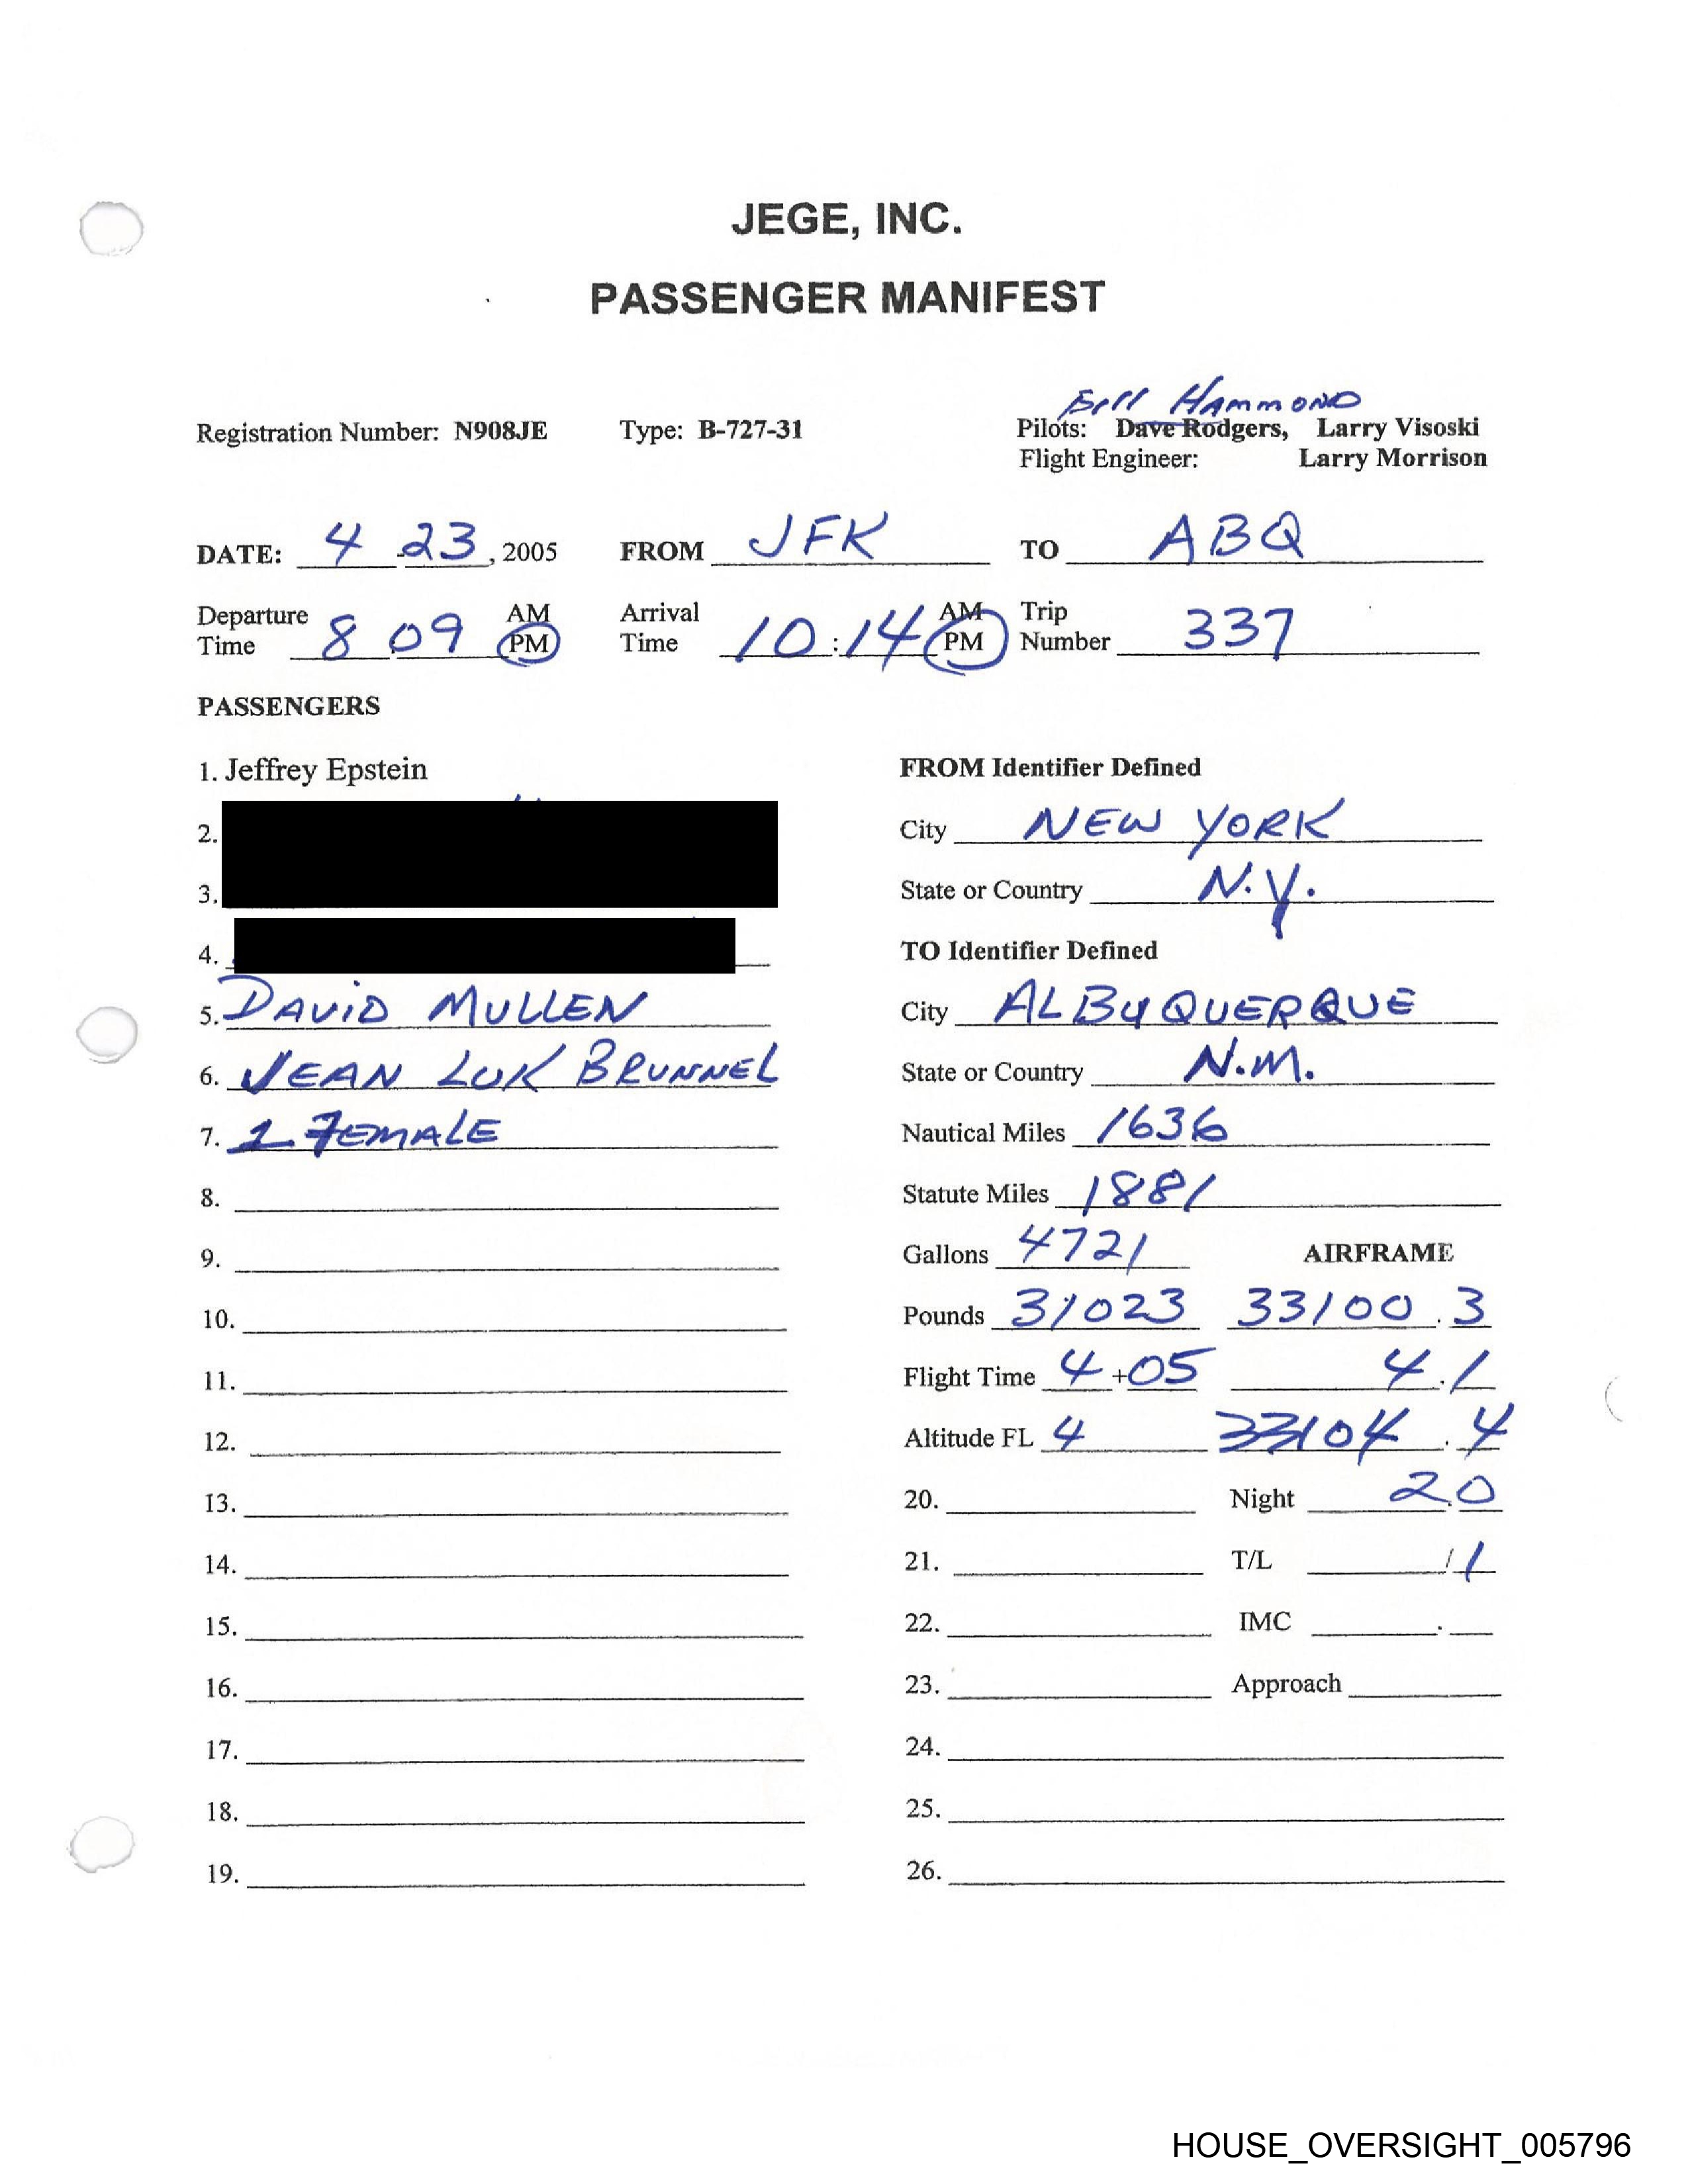 JEGE, INC.
PASSENGER MANIFEST
Bill Hammond
Registration Number: N908JE Type: B-727-31 Pilots: Dave Rodgers, Larry Visoski
Flight Engineer: Larry Morrison
DATE: 4-23, 2005 FROM JFK TO ABQ
Departure Time 8:09 AM PM Arrival Time 10:14 AM PM Trip Number 337
PASSENGERS
1. Jeffrey Epstein
2.
3.
4.
5. DAVID MULLEN
6. JEAN LUK BRUNNEL
7. 1 FEMALE
8.
9.
10.
11.
12.
13.
14.
15.
16.
17.
18.
19.
FROM Identifier Defined
City NEW YORK
State or Country N.Y.
TO Identifier Defined
City ALBUQUERQUE
State or Country N.M.
Nautical Miles 1636
Statute Miles 1881
Gallons 4721 AIRFRAME
Pounds 31023 33100.3
Flight Time 4+05 4.1
Altitude FL 4 33104.4
20. Night 2.0
21. T/L /1
22. IMC .
23. Approach
24.
25.
26.
HOUSE_OVERSIGHT_005796